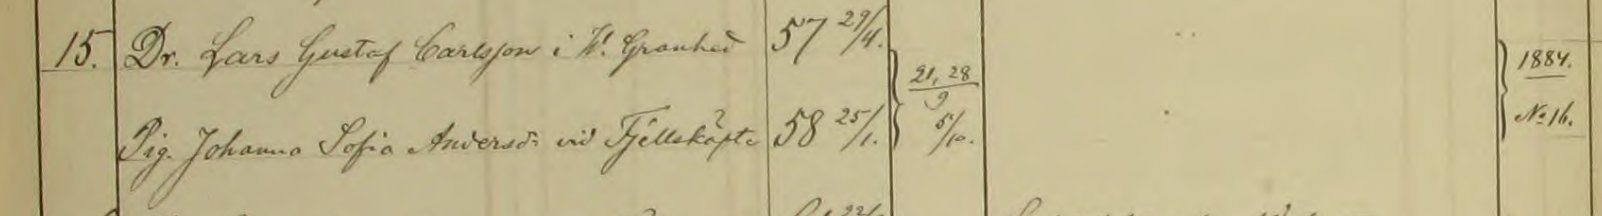 15. Dr. Lars Gustaf Carlsson i W. Granhed 57 29/4. 1884.
21, 28/9 5/10. No 16.
Pig. Johanna Sofia Andersdr vid Fjellskäfte 58 25/1.